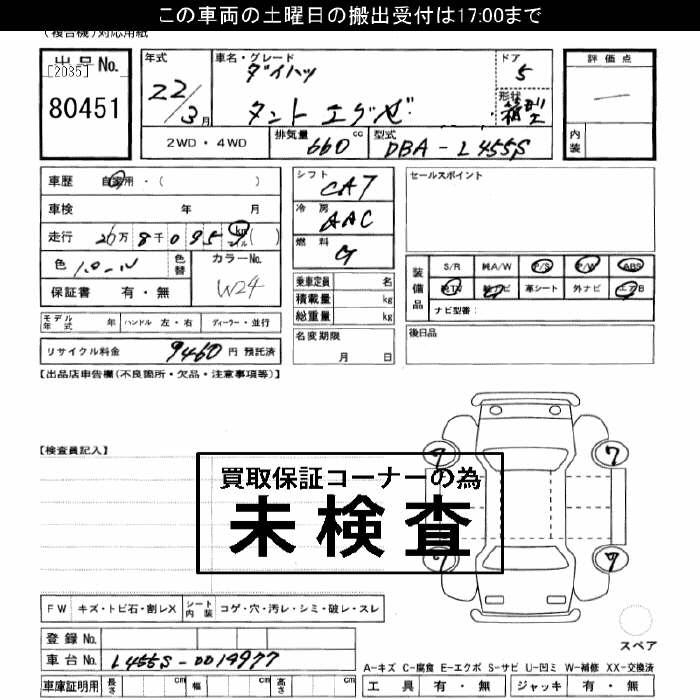 この車両の土曜日の搬出受付は17:00まで
(複合機)対応用紙
出品No. [2035] 80451
年式 22/3月
車名・グレード ダイハツ タント エグゼ
ドア 5
形状 箱型
評価点 —
内装
2WD・4WD 排気量 660 cc 型式 DBA-L455S
車歴 自家用・( )
車検 年 月
走行 26万8千0959km マイル ( )
色 パール 色替 カラーNo. W24
保証書 有・無
モデル年式 年 ハンドル 左・右 ディーラー・並行
リサイクル料金 9460 円 預託済
シフト CAT
冷房 AAC
燃料 G
乗車定員 名
積載量 kg
総重量 kg
名変期限 月 日
セールスポイント
装備品 S/R 純A/W P/S P/W ABS
純TV 純ナビ 革シート 外ナビ エアB
ナビ型番:
後日品
【出品店申告欄(不良箇所・欠品・注意事項等)】
【検査員記入】
買取保証コーナーの為
未検査
7 7
7 7
スペア
FW キズ・トビ石・割レX シート内装 コゲ・穴・汚レ・シミ・破レ・スレ
登録No.
車台No. L455S-0019977
車庫証明用 長さ cm 幅 cm 高さ cm
A-キズ C-腐食 E-エクボ S-サビ U-凹ミ W-補修 XX-交換済
工具 有・無 ジャッキ 有・無